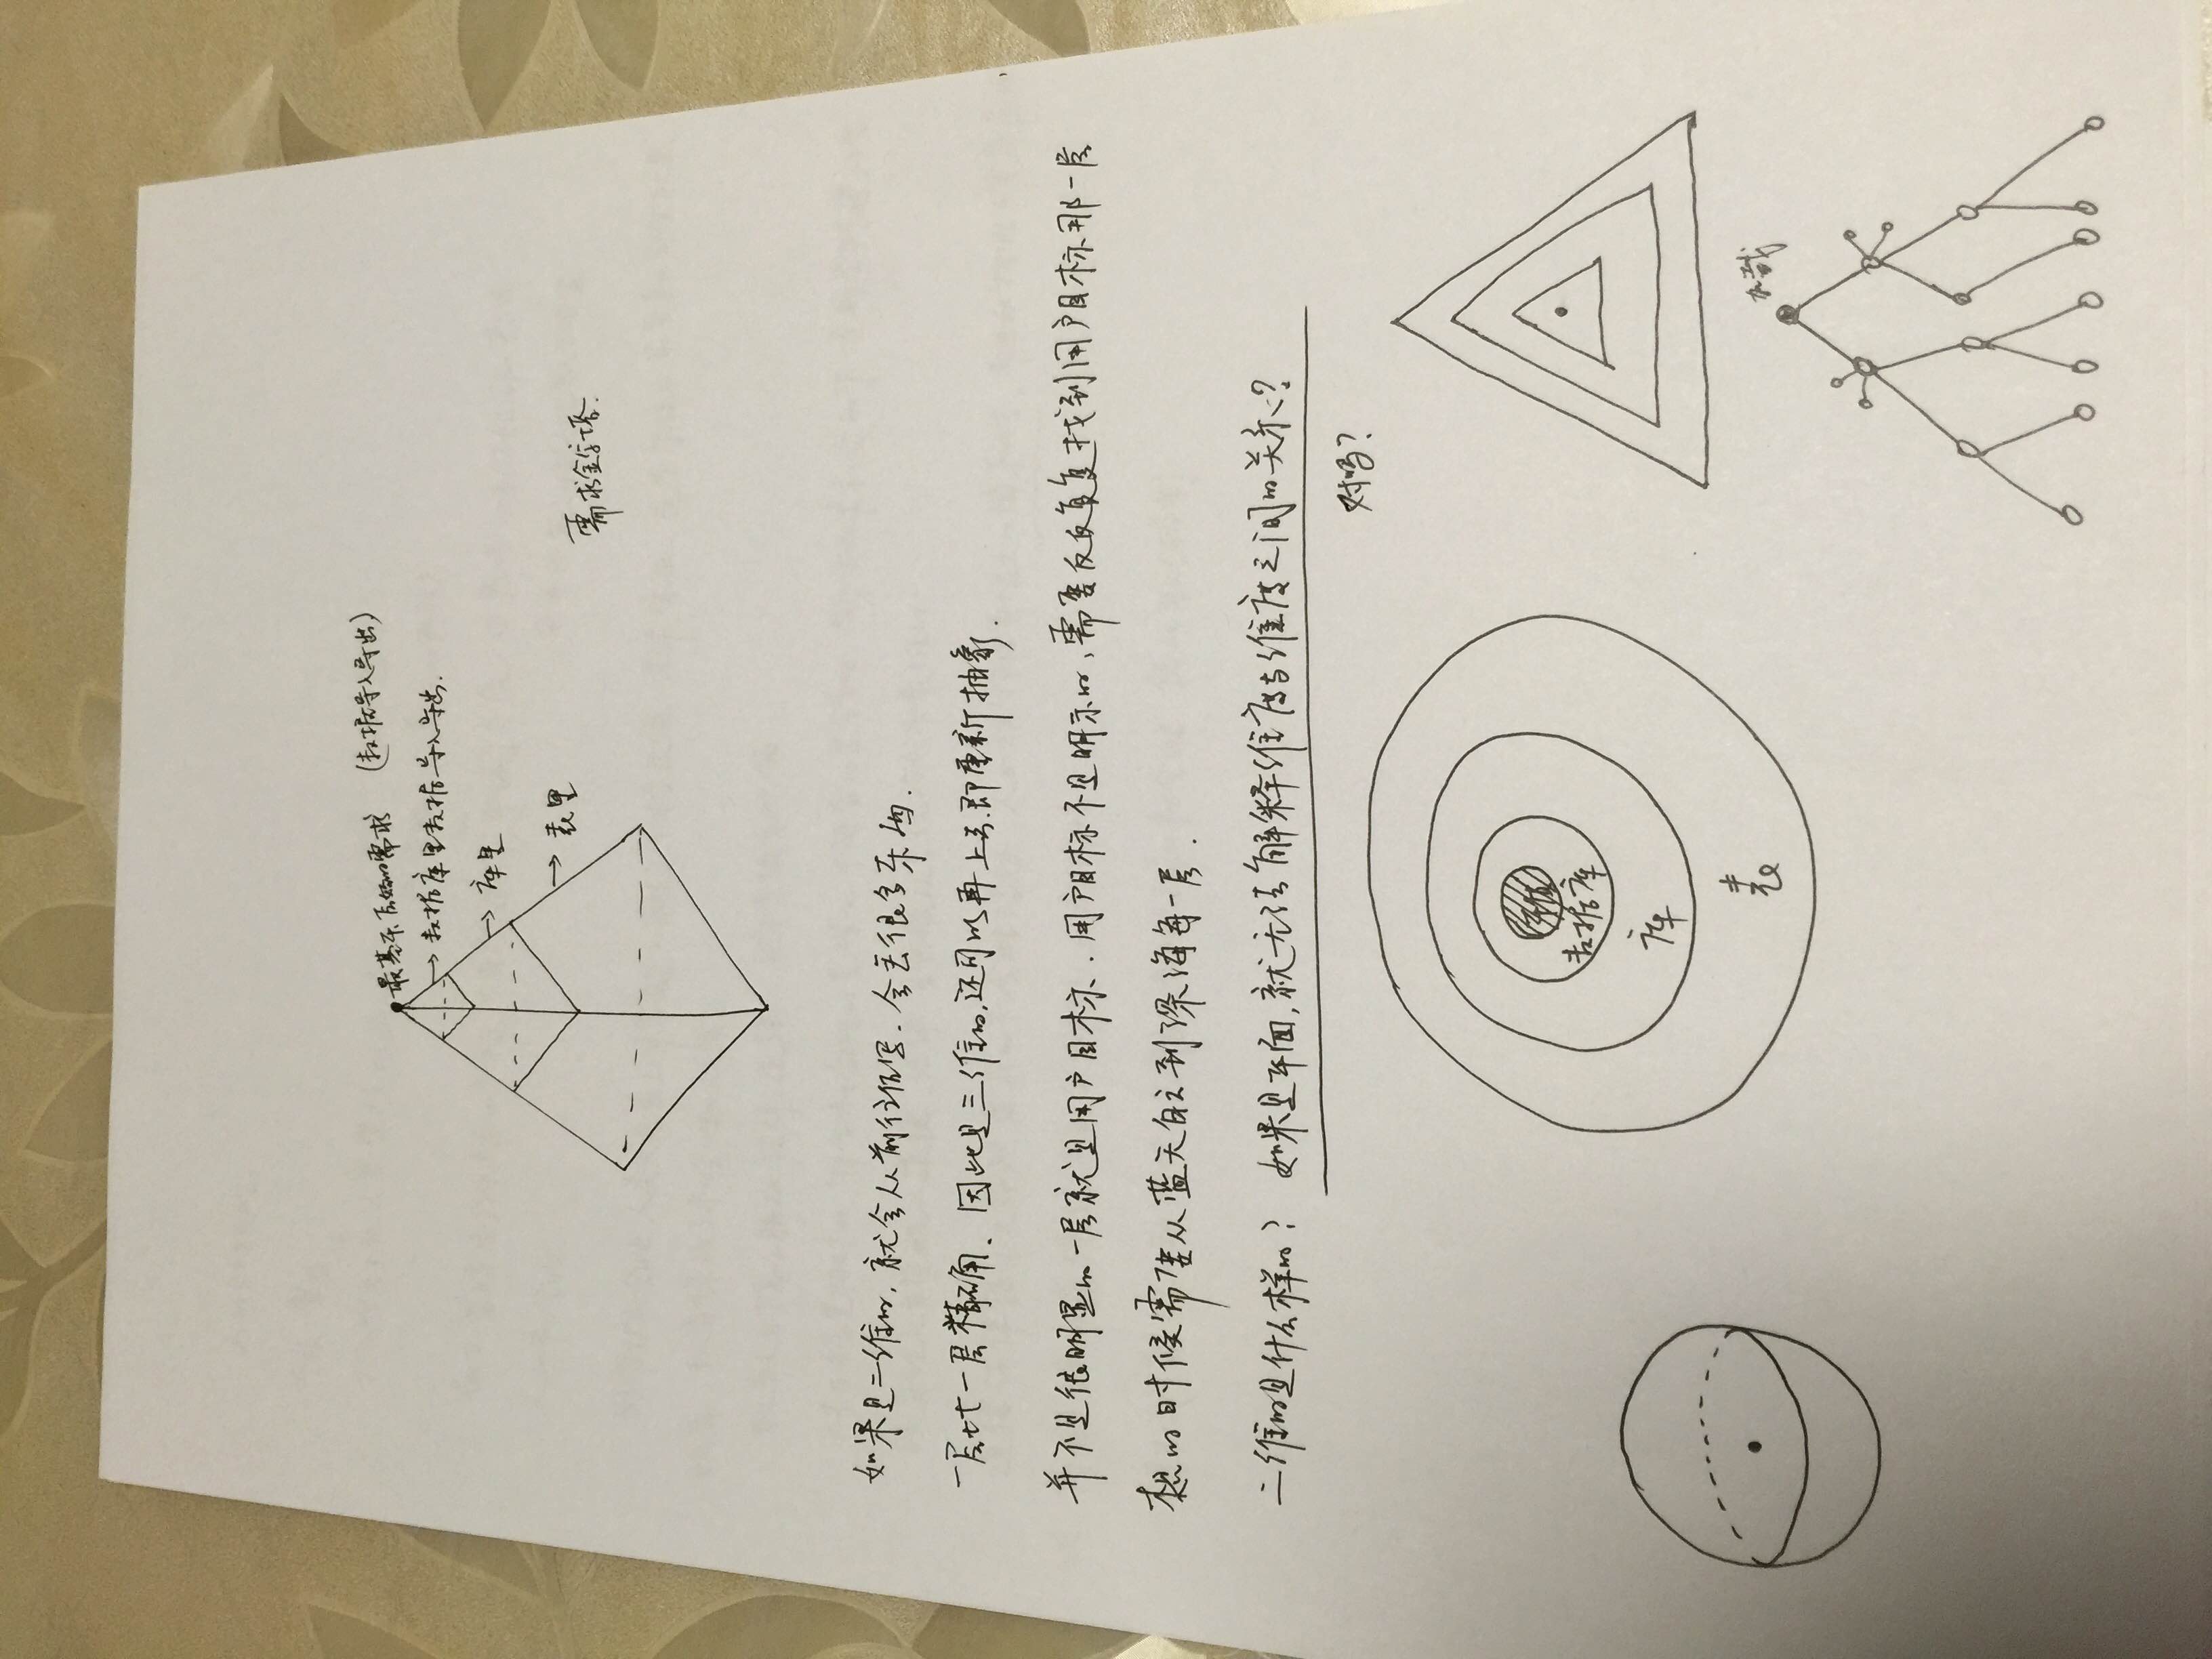 最基本原始的需求 (数据导入导出)
数据库里数据导入导出.
库里
表里
需求金字塔.
如果是二维的, 就会从前往后写. 会丢很多东西.
一层比一层精确. 因此是三维的, 还可以再上去, 即重新抽象.
并不是很明显的一层就是用户目标. 用户目标不是明示的, 需要反反复复找到用户目标那一层
想的时候需要从蓝天白云到深海每一层.
二维的是什么样的? 如果是平面, 就无法解释维度与维度之间的关系?
对吗?
数据库
库
表
加载